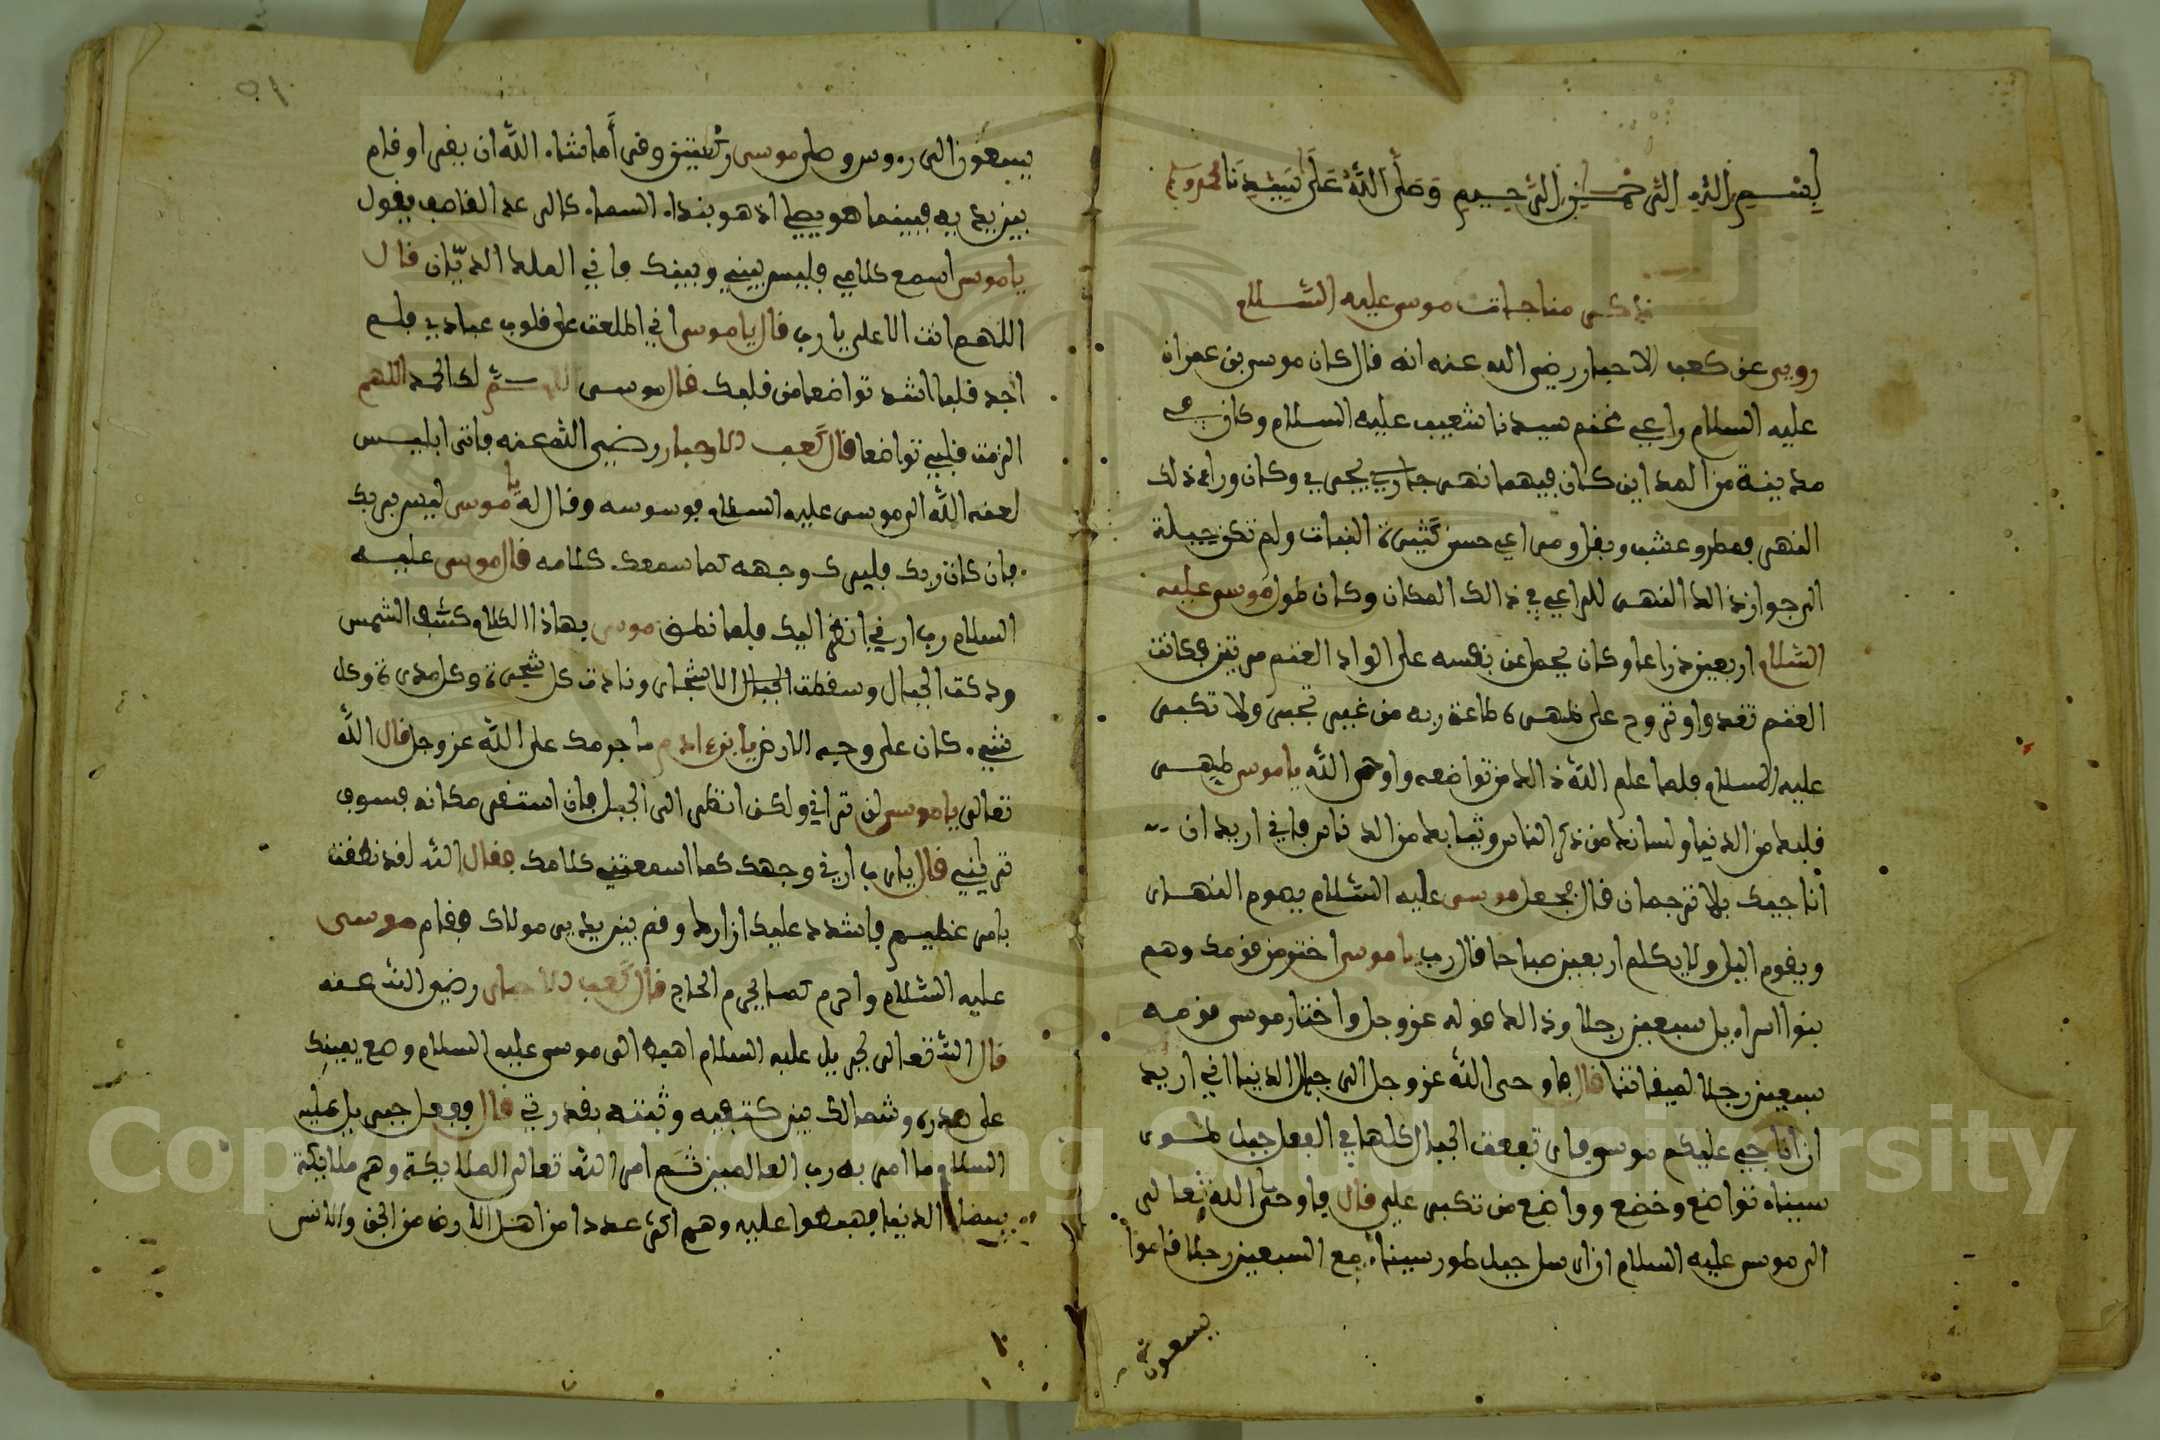 بسم الله الرحمن الرحيم وصلى الله على سيدنا محمد وسلم
ذكر مناجات موسى عليه السلام
روي عن كعب الاحبار رضي الله عنه انه قال كان موسى بن عمران
عليه السلام راعي غنم سيدنا شعيب عليه السلام وكان في
مدينة من المداين كان فيهما نهر جاري يجري وكان وراء ذلك
النهر مطر وعشب وبقل ومراعي حسن كثيرة النبات ولم تكن حيلة
الى جواز ذالك النهر للراعي في ذالك المكان وكان طول موسى عليه
السلام اربعين ذراعا وكان يحمل عن نفسه على الواد الغنم مرتين فكانت
الغنم تغدوا وتروح على ظهره طاعة ربه من غير تجبر ولا تكبر
عليه السلام فلما علم الله ذالك من تواضعه واوحى الله يا موسى طهر
قلبك من الدنيا ولسانك من ذكر الناس وثيابك من الدناس فاني اريد ان
اناجيك بلا ترجمان قال فجعل موسى عليه السلام يصوم النهار
ويقوم اليل ولا يكلم اربعين صباحا قال رب يا موسى اختر من قومك وهم
بنوا اسراءيل سبعين رجلا وذالك قوله عز وجل واختار موسى قومه
سبعين رجلا لميقاتنا قال فاوحى الله عز وجل الى جبال الدنيا اني اريد
ان اناجي عليكم موسى فارتفعت الجبال كلها في العلو جبل طور
سيناء تواضع وخضع وواضع من تكبر عليه قال فاوحى الله تعالى
الى موسى عليه السلام ان ارسل جبل طور سيناء مع السبعين رجلا فاتوا
يسعون
٥١
يسعون الى رءوس وصلى موسى ركعتين وقرأ ما شاء الله ان يقرا وقام
بين يديه فبينما هو يصلي اذ هو بنداء السماء كالرعد القاصف يقول
يا موسى اسمع كلامي فليس بيني وبينك فاني الملك الديان قال
اللهم انت الاعلى يا رب قال يا موسى اني اطلعت على قلوب عبادي فلم
اجد قلبا اشد تواضعا من قلبك قال موسى لك الحمد اللهم
الزمت قلبي تواضعا قال كعب الاحبار رضي الله عنه فاتى ابليس
لعنه الله الى موسى عليه السلام فوسوسه وقال له يا موسى ليس بربك
فان كان ربك فليرك وجهه كما سمعك كلامه قال موسى عليه
السلام رب ارني انظر اليك فلما نطق موسى بهاذا الكلام كشف الشمس
ودكت الجبال وسقطت الجبال الاشجار ونادت كل شجرة وكل مدرة وكل
شيء كان على وجه الارض يا بن ءادم ما اجرمك على الله عز وجل قال الله
تعالى يا موسى لن تراني ولكن انظر الى الجبل فان استقر مكانه فسوف
تريني قال يا رب ارني وجهك كما اسمعتني كلامك فقال الله لقد نطقت
بامر عظيم فاشدد عليك ازارك وقم بين يدي مولاك فقام موسى
عليه السلام واحرم كما يحرم الحاج قال كعب الاحبار رضي الله عنه
قال الله تعالى لجبريل عليه السلام اهبط الى موسى عليه السلام وضع يمينك
على صدره وشمالك بين كتفيه وثبته بقدرتي قال ففعل جبريل عليه
السلام ما امره به رب العالمين ثم امر الله تعالى الملايكة وهم ملايكة
سماء الدنيا فهبطوا عليه وهم اكثر عددا من اهل الارض من الجن والانس